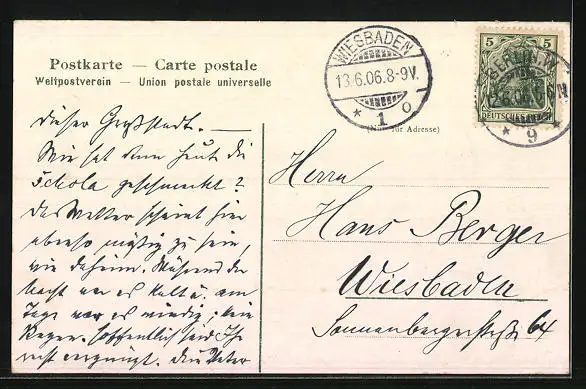 Postkarte — Carte postale
Weltpostverein — Union postale universelle
WIESBADEN
13.6.06.8-9V.
* 1 o
5 5
DEUTSCHES REICH
BERLIN.W.
12.6.06.
* 9 *
(Nur für Adresse)
dieser Großstadt. —
Wie hat denn heut die
Schola geschmeckt?
Das Wetter scheint hier
ebenso mäßig zu sein,
wie daheim. Während der
Nacht war es kalt u. am
Tage war es windig; kein
Regen. Hoffentlich seid Ihr
recht vergnügt.
Herrn
Hans Berger
Wiesbaden
Sonnenbergerstraße 64